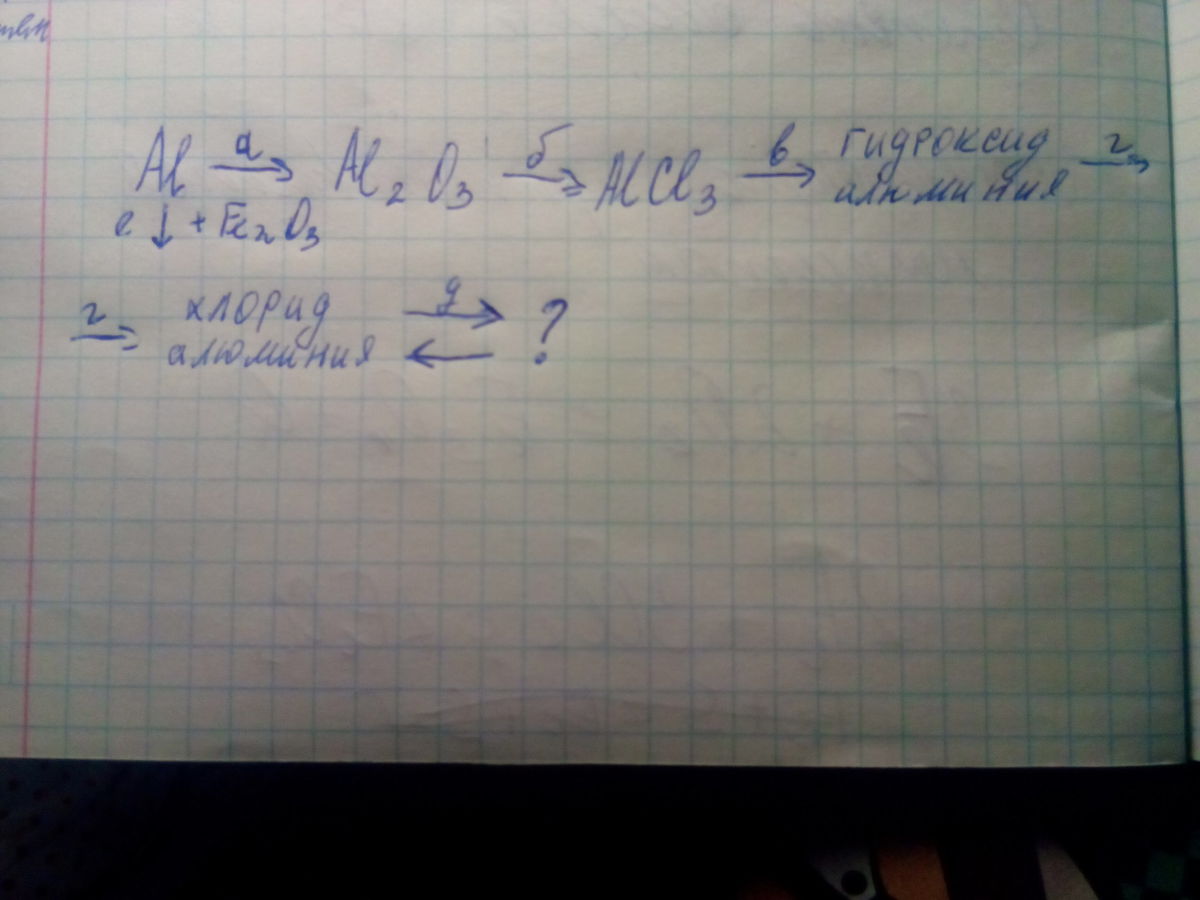 Al а→ Al₂O₃ б→ AlCl₃ в→ гидроксид алюминия г→
е↓ + Fe₂O₃
г→ хлорид алюминия д⇄ ?